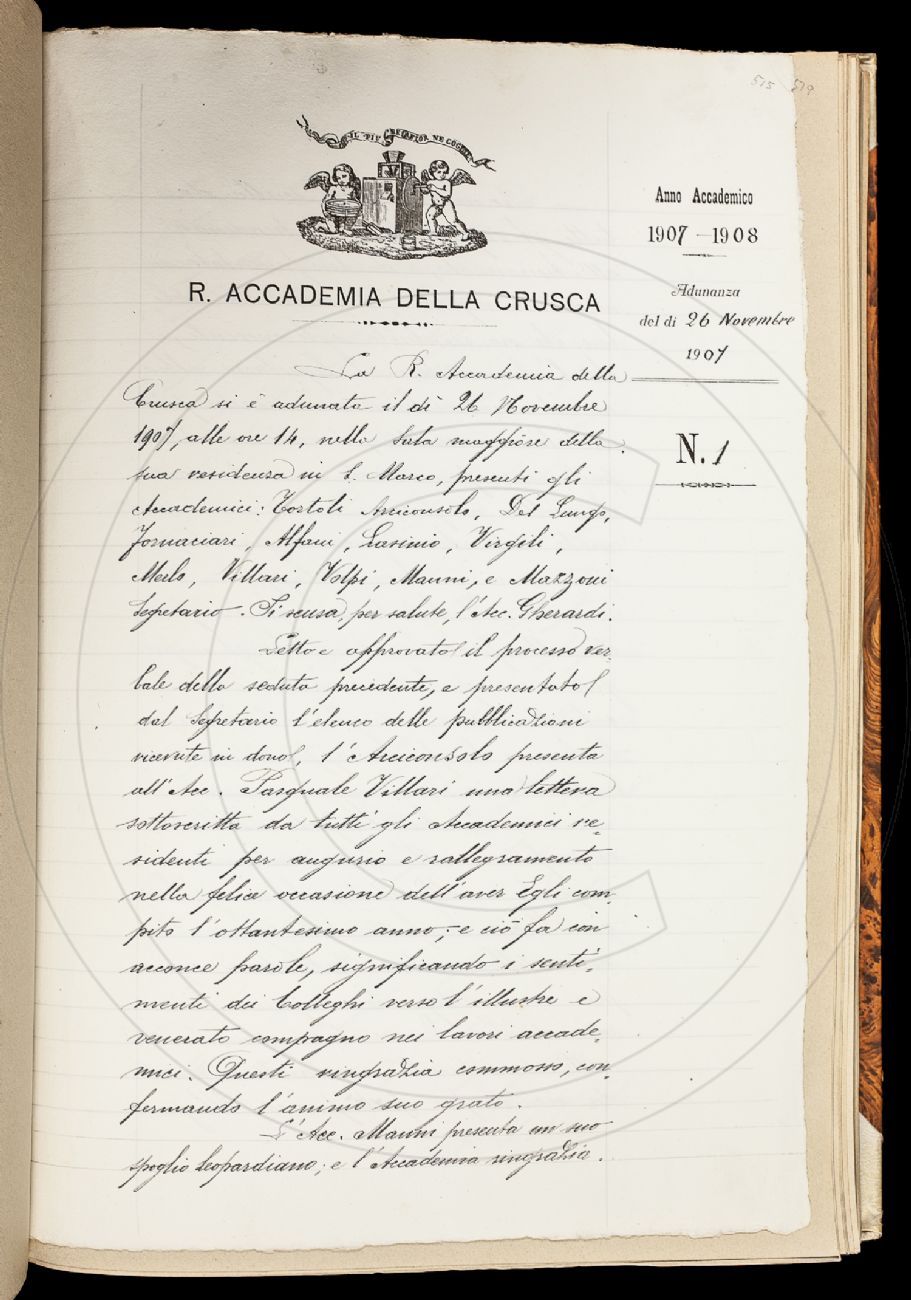 515 519
IL PIÙ BEL FIOR NE COGLIE
R. ACCADEMIA DELLA CRUSCA
Anno Accademico
1907-1908
Adunanza
del di 26 Novembre
1907
N. 1
La R. Accademia della
Crusca si è adunata il dì 26 Novembre
1907, alle ore 14, nella Sala maggiore della
sua residenza in S. Marco, presenti gli
Accademici: Tortoli Arciconsolo, Del Lungo,
Fornaciari, Alfani, Lasinio, Virgili,
Merlo, Villari, Volpi, Manni, e Mazzoni
Segretario. Si scusa, per salute, l'Acc. Gherardi.
Letto e approvato il processo ver-
bale della seduta precedente, e presentato
dal Segretario l'elenco delle pubblicazioni
ricevute in dono, l'Arciconsolo presenta
all'Acc. Pasquale Villari una lettera
sottoscritta da tutti gli Accademici re-
sidenti per augurio e rallegramento
nella felice occasione dell'aver Egli com-
pito l'ottantesimo anno; e ciò fa con
acconce parole, significando i senti-
menti dei Colleghi verso l'illustre e
venerato compagno nei lavori accade-
mici. Questi ringrazia commosso, con-
fermando l'animo suo grato.
L'Acc. Manni presenta un suo
spoglio leopardiano; e l'Accademia ringrazia.